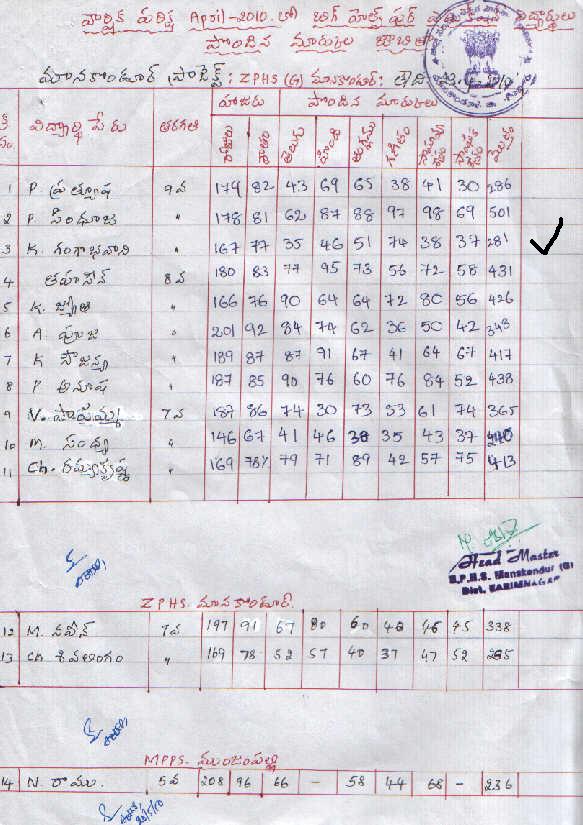 వార్షిక పరీక్ష April-2010. లో విద్యార్థులు
పొందిన మార్కుల
మానకొండూర్ ప్రాజెక్ట్: ZPHS (G) మానకొండూర్:
హాజరు పొందిన మార్కులు
విద్యార్థి పేరు తరగతి హాజరు శాతం తెలుగు హిందీ ఇంగ్లీషు గణితం మొత్తం
1 P. ప్రత్యూష 9వ 179 82 43 69 65 38 41 30 286
2 P. సింధూజ " 178 81 62 87 88 97 98 69 501
3 K. గంగాభవాని " 167 77 35 46 51 74 38 37 281
4 తహసీన్ 8వ 180 83 77 95 73 56 72 58 431
5 K. జ్యోతి " 166 76 90 64 64 72 80 56 426
6 A. పూజ " 201 92 84 74 62 36 50 42 348
7 K సౌజన్య " 189 87 87 91 67 41 64 67 417
8 P అనూష " 187 85 90 76 60 76 84 52 438
9 N. పోషమ్మ 7వ 187 86 74 30 73 53 61 74 365
10 M. సంధ్య " 146 67 41 46 38 35 43 37 240
11 Ch. రమ్యకృష్ణ " 169 78% 79 71 89 42 57 75 413
Head Master
Z.P.H.S. Manakondur (G)
Dist. KARIMNAGAR
ZPHS. మానకొండూర్.
12 M. నవీన్ 7వ 197 91 67 80 60 46 46 45 338
13 Ch. శివలింగం " 169 78 52 57 40 37 47 52 285
MPPS. ముంజంపల్లి
14 N. రాము. 5వ 208 96 66 - 58 44 68 - 236